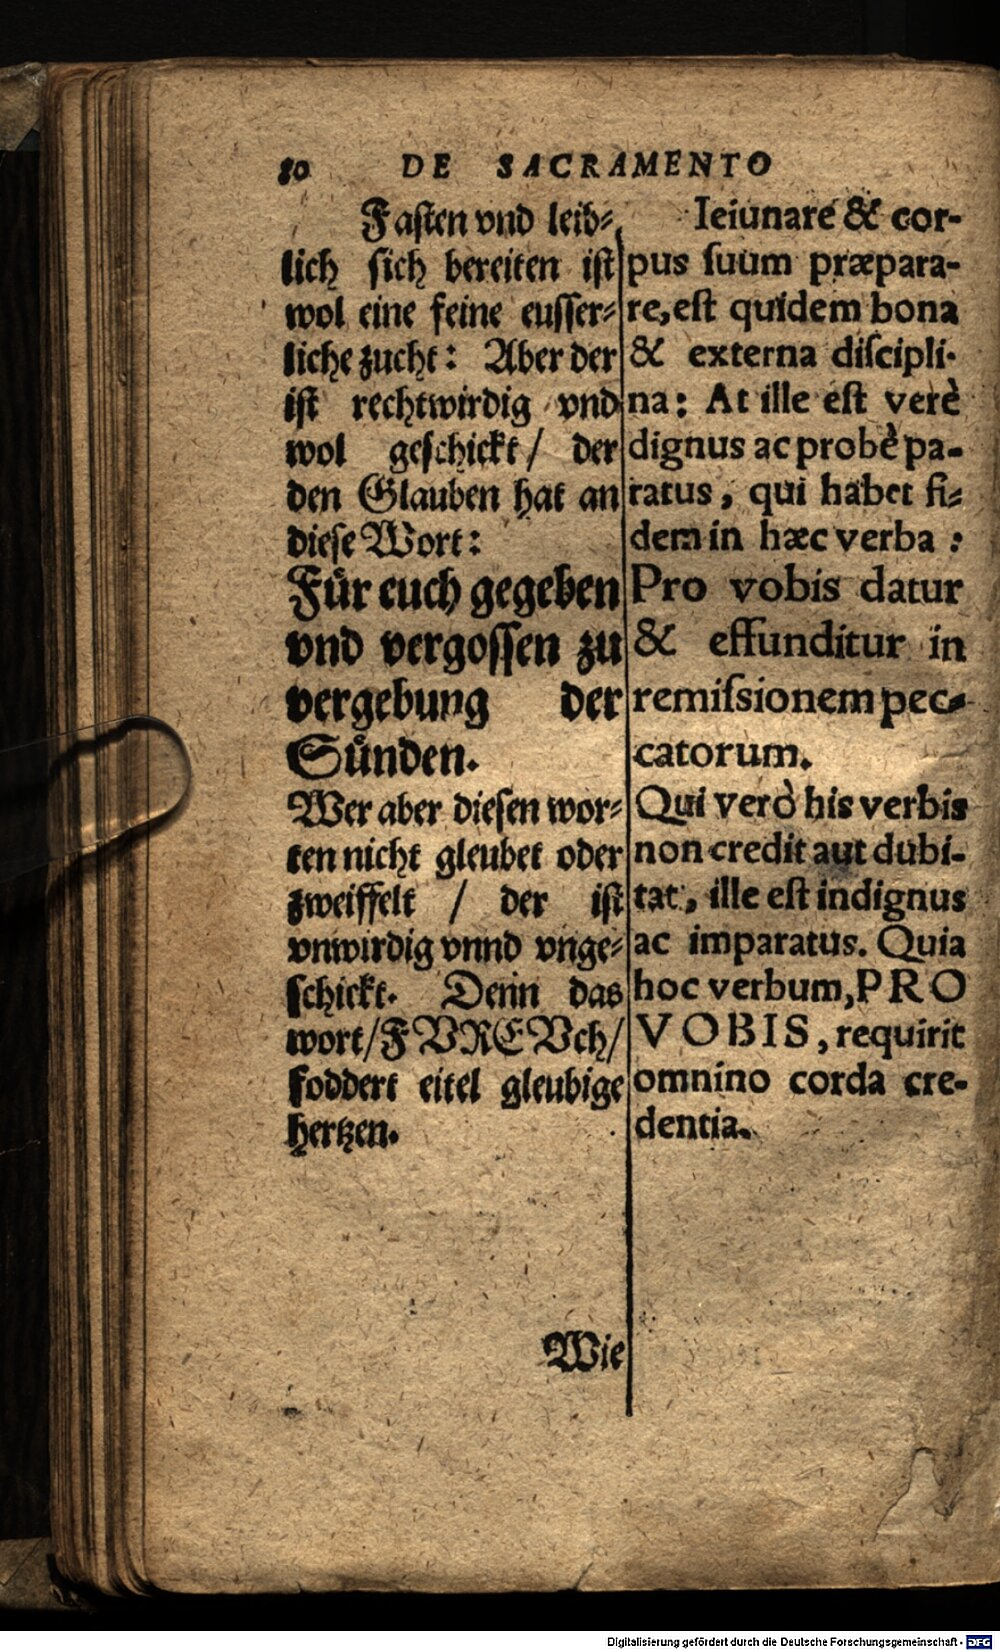 80 DE SACRAMENTO
Faſten vnd leib⸗
lich ſich bereiten iſt
wol eine feine euſſer⸗
liche zucht: Aber der
iſt rechtwirdig vnd
wol geſchickt / der
den Glauben hat an
dieſe Wort:
Fuͤr euch gegeben
vnd vergoſſen zu
vergebung der
Suͤnden.
Wer aber dieſen wor⸗
ten nicht gleubet oder
zweiffelt / der iſt
vnwirdig vnnd vnge⸗
ſchickt. Denn das
wort/FVREVch/
foddert eitel gleubige
hertzen.
Wie
Ieiunare & cor-
pus ſuum præpara-
re, eſt quidem bona
& externa diſcipli-
na: At ille eſt verè
dignus ac probè pa-
ratus, qui habet fi-
dem in hæc verba:
Pro vobis datur
& effunditur in
remiſsionem pec-
catorum.
Qui verò his verbis
non credit aut dubi-
tat, ille eſt indignus
ac imparatus. Quia
hoc verbum, PRO
VOBIS, requirit
omnino corda cre-
dentia.
Digitalisierung gefördert durch die Deutsche Forschungsgemeinschaft - DFG